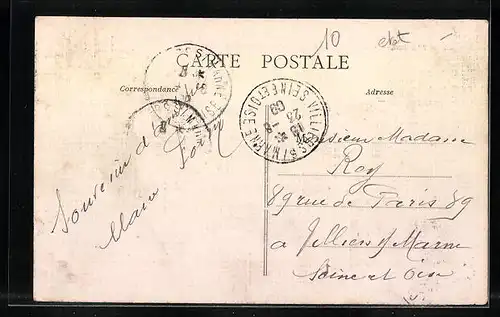 10
CARTE POSTALE
Correspondance
Adresse
VILLIERS S MARNE
SEINE ET OISE
25
09
Souvenir
Monsieur Madame
Roy
89 rue de Paris 89
a Villiers s/ Marne
Seine et Oise